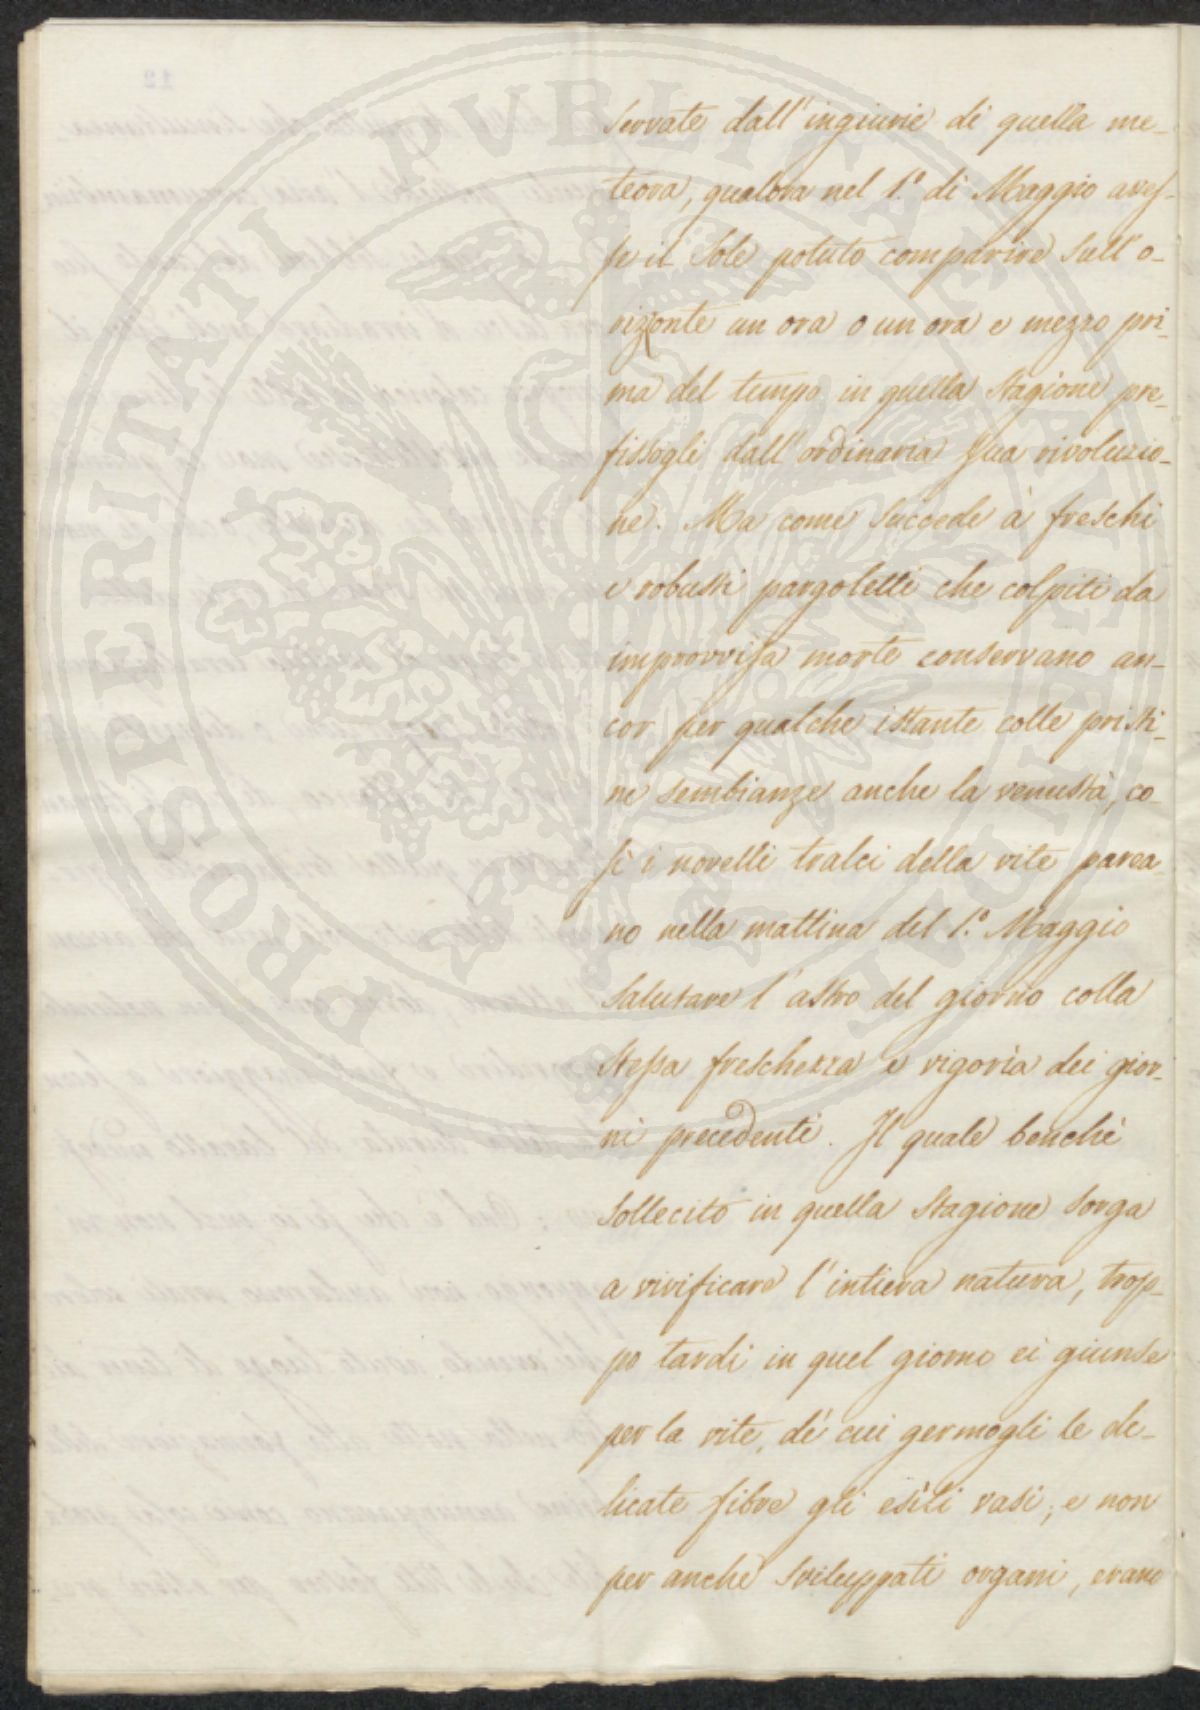 servate dall'ingiurie di quella me-
teora, qualora nel 1.º di Maggio aves-
se il Sole potuto comparire sull'o-
rizzonte un ora o un ora e mezzo pri-
ma del tempo in quella stagione pre-
fissogli dall'ordinaria sua rivoluzio-
ne. Ma come succede à freschi
e robusti pargoletti che colpiti da
improvvisa morte conservano an-
cor per qualche istante colle pristi-
ne sembianze anche la venustà, co-
sì i novelli tralci della vite parea-
no nella mattina del 1.º Maggio
salutare l'astro del giorno colla
stessa freschezza e vigoria dei gior-
ni precedenti. Il quale benchè
sollecito in quella stagione sorga
a vivificare l'intiera natura, trop-
po tardi in quel giorno ei giunse
per la vite, dé cui germogli le de-
licate fibre gli esili vasi, e non
per anche sviluppati organi, erano
PROSPERITATI PVBLICAE AVGENDAE